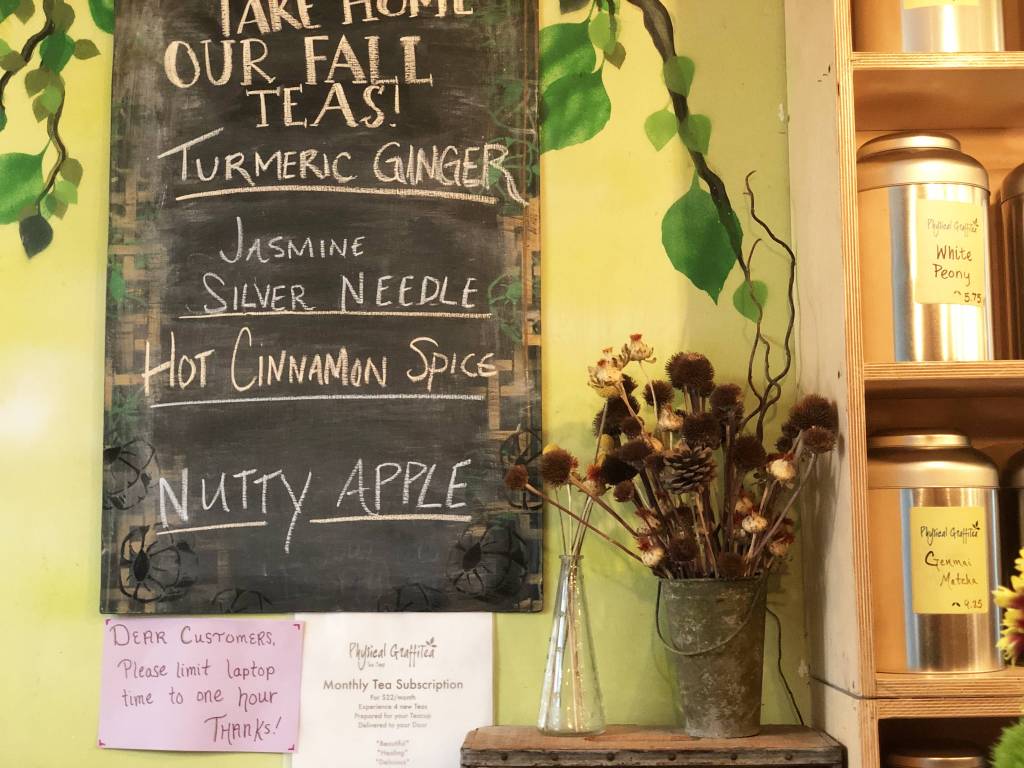 TAKE HOME
OUR FALL
TEAS!
TURMERIC GINGER
JASMINE
SILVER NEEDLE
HOT CINNAMON SPICE
NUTTY APPLE
DEAR CUSTOMERS,
Please limit laptop
time to one hour
THANKS!
Physical GraffiTea
Monthly Tea Subscription
For $22/month
Experience 4 new Teas
Prepared for your Teacup
Delivered to your Door
"Beautiful"
"Healing"
"Delicious"
Physical GraffiTea
White
Peony
5.75
Physical GraffiTea
Genmai
Matcha
9.25